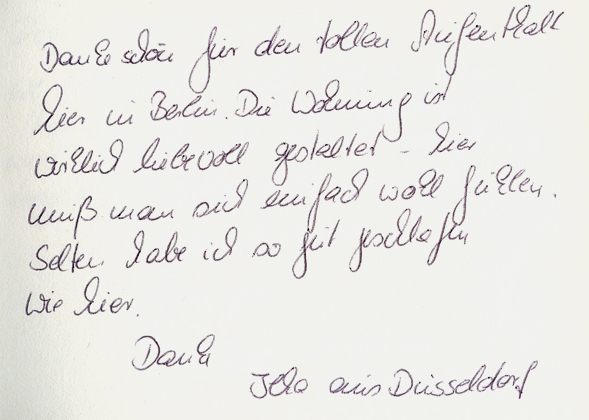 Danke schön für den tollen Aufenthalt
hier in Berlin. Die Wohnung ist
wirklich liebevoll gestaltet - hier
muß man sich einfach wohl fühlen.
Selten habe ich so gut geschlafen
wie hier.
Danke
aus Düsseldorf